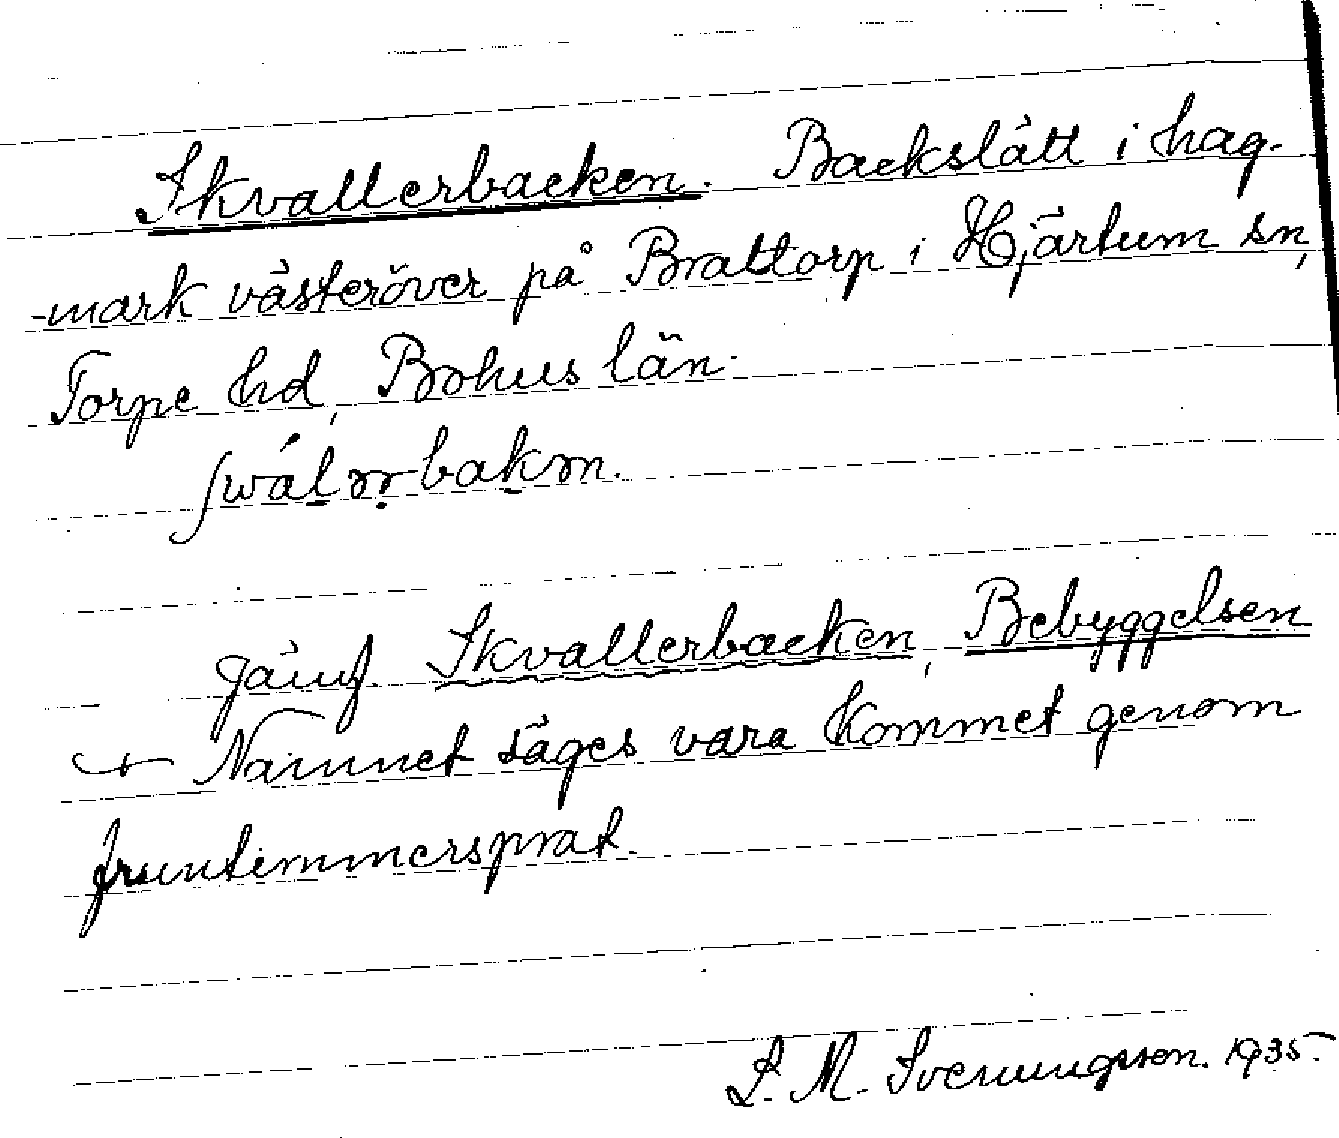 Skvallerbacken. Backslätt i hag-
mark västeröver på Brattorp i Hjärtum sn,
Torpe hd, Bohus län.
Jämf. Skvallerbacken, Bebyggelsen
Namnet säges vara kommet genom
fruntimmersprat.
L. M. Svenungsson. 1935.